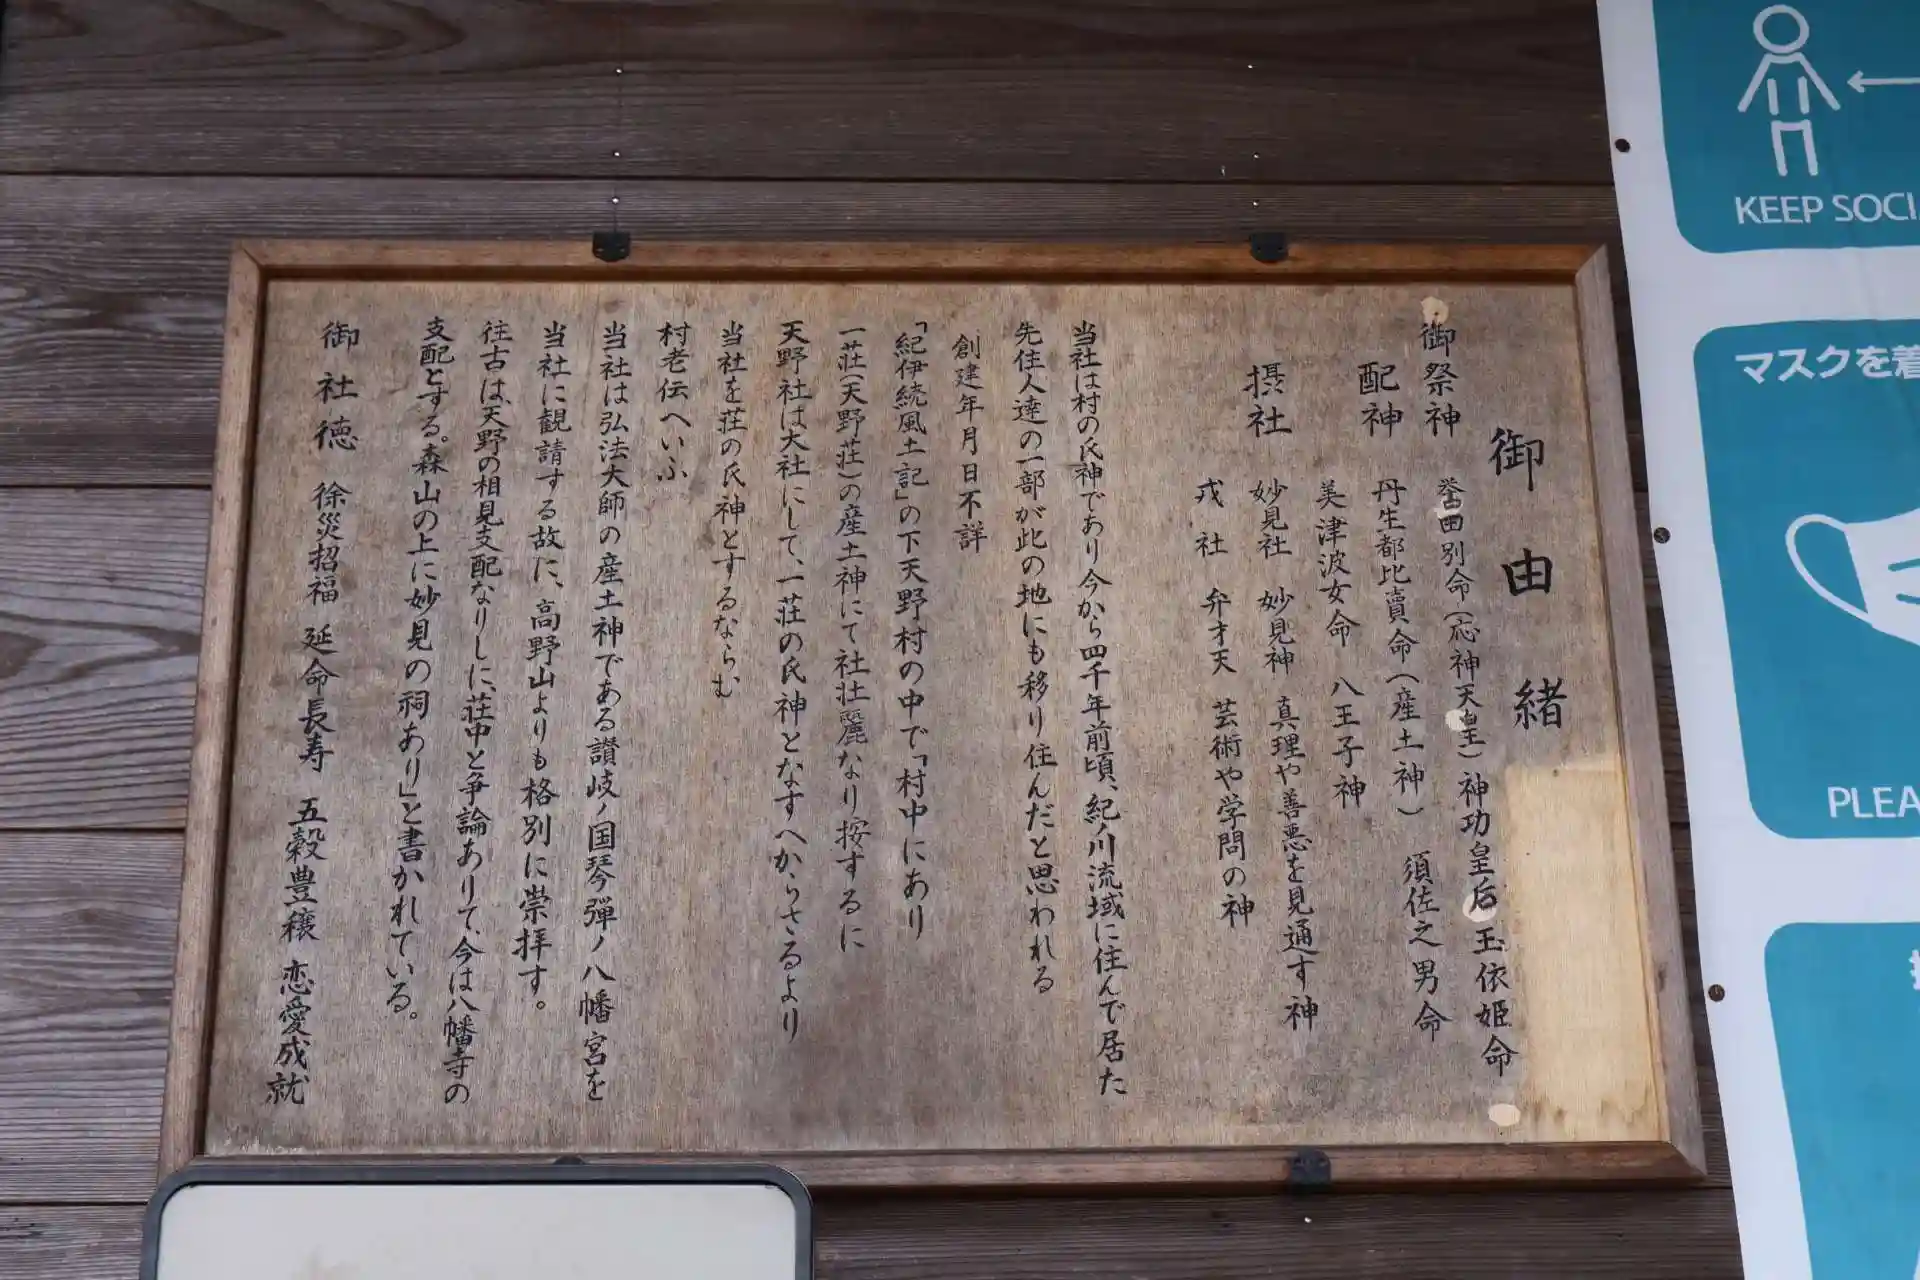 御由緒
御祭神　誉田別命（応神天皇）神功皇后　玉依姫命
配神　丹生都比賣命（産土神）　須佐之男命
美津波女命　八王子神
摂社　妙見社　妙見神　真理や善悪を見通す神
戎社　弁才天　芸術や学問の神
当社は村の氏神であり今から四千年前頃、紀ノ川流域に住んで居た
先住人達の一部が此の地にも移り住んだと思われる
創建年月日不詳
「紀伊続風土記」の下天野村の中で「村中にあり
一荘（天野荘）の産土神にて社壮麗なり按するに
天野社は大社にして、一荘の氏神となすへからさるより
当社を荘の氏神とするならむ
村老伝へいふ
当社は弘法大師の産土神である讃岐ノ国琴弾ノ八幡宮を
当社に観請する故に、高野山よりも格別に崇拝す。
往古は、天野の相見支配なりしに、荘中と争論ありて、今は八幡寺の
支配とする。森山の上に妙見の祠あり」と書かれている。
御社徳　徐災招福　延命長寿　五穀豊穣　恋愛成就
KEEP SOCI
マスクを着
PLEA